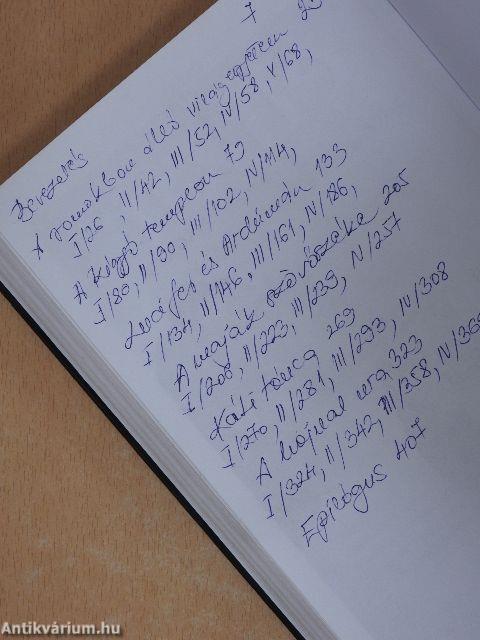 Bevezetés 7
A romokban álló virágegyetem 25
I/26, II/42, III/52, IV/58, V/68,
A Kígyó templom 79
I/80, II/90, III/102, IV/114,
Lucifer és Ardámán 133
I/134, II/146, III/161, IV/186,
A maják szóvászéke 205
I/206, II/223, III/239, IV/257
Káli tánca 269
I/270, II/281, III/293, IV/308
A hajnal ura 323
I/324, II/342, III/358, IV/369
Epilógus 407
Antikvárium.hu